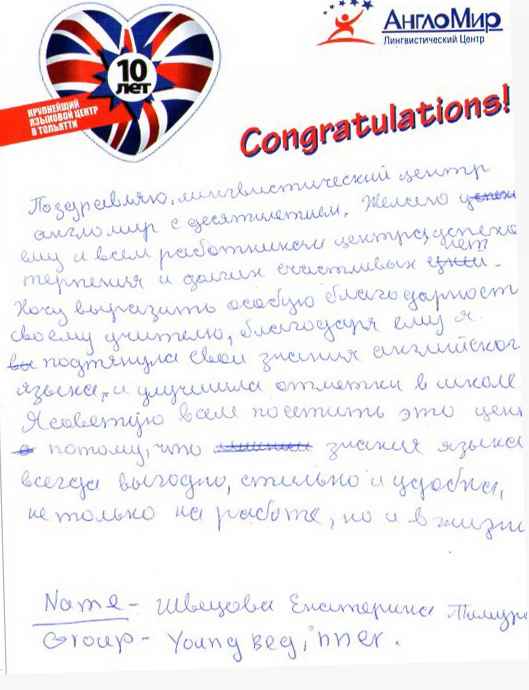 АнглоМир
Лингвистический Центр
10
лет
КРУПНЕЙШИЙ
ЯЗЫКОВОЙ ЦЕНТР
В ТОЛЬЯТТИ
Congratulations!
Поздравляю, лингвистический центр
англо мир с десятилетием. Желаю
ему и всем работникам центра, успеха
терпения и долгих счастливых лет.
Хочу выразить особую благодарност
своему учителю, благодаря ему я
подтянула свои знания английског
языка, и улучшила отметки в школе.
Я советую всем посетить это цен
потому, что знания языка
всегда выгодно, стильно и удобна,
не только на работе, но и в жизни
.
Name - Швецова Екатерина Тимур
Group - Young beginner.